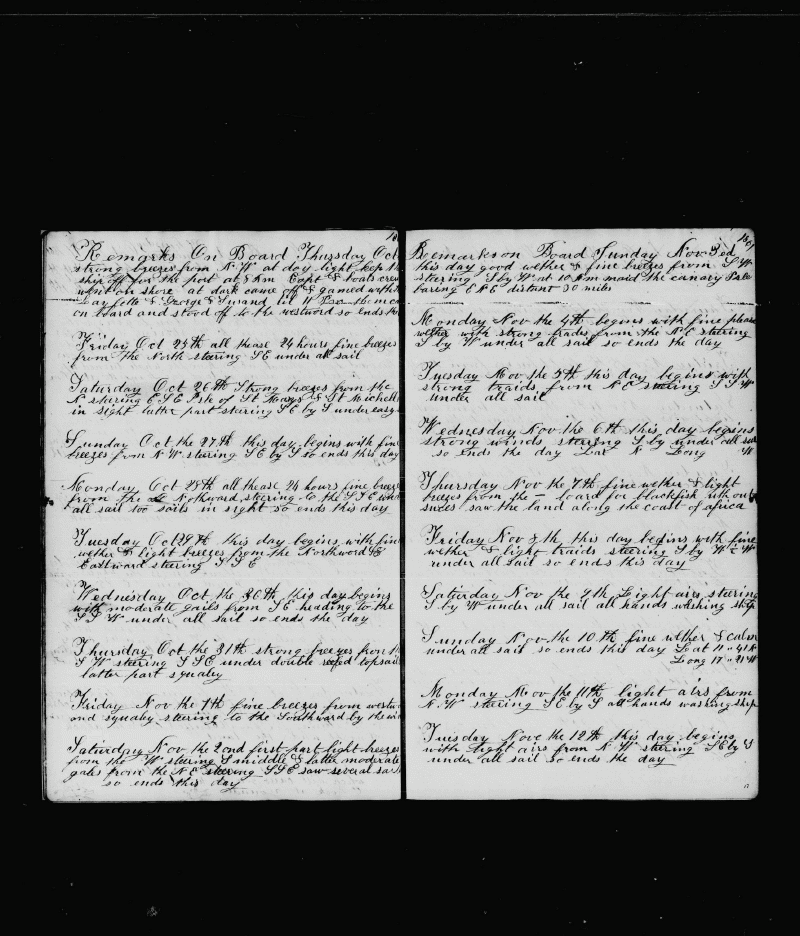 18
Remarks On Board Thursday Oct
strong breezes from N W at day light kept th
ship off for the port at 8 Am Capt & boats crew
went on shore at dark came off & gamed with
Lafette & George & Susand til 11 Pm the
on board and stood off to the westword so ends th
Friday Oct 25th all thease 24 hours fine breez
from the North steering SE under all sail
Saturday Oct 26th Strong breezes from the
N stering ESE Isle of St Marys & St Michell
in sight latter part stering SE by S under easy
Sunday Oct the 27th this day begins with fine
breezes from N W stering SE by S so ends this day
Monday Oct 28th all thease 24 hours fine breez
from the Nothward steering to the SSE und
all sail too sails in sight so ends this day
Tuesday Oct 29th this day begins with fine
wether & light breezes from the Northword &
Eastward steering SSE
Wednesday Oct the 30th this day begins
with moderate gails from SE heading to the
SSW under all sail so ends the day
Thursday Oct the 31th strong breezes from th
SW steering SSE under double reefed topsail
latter part squaly
Friday Nov the 1th fine breezes from westw
and squaly steering to the Southward by the wi
Saturday Nov the 2ond first part light breezes
from the W steering S middle & latter moderate
gales from the NE steering SSE saw several sail
so ends this day
18
Remarks on Board Sunday Nov 3ed
this day good wether & fine breezes from SW
steering S by W at 10 Am maid the canary Isle
baring E N E distant 30 miles
Monday Nov the 4th begins with fine pleas
wether with strong trades from the NE steering
S by W under all sail so ends the day
Tuesday Nov the 5th this day begins with
strong traids from NE steering SSW
under all sail
Wednesday Nov the 6th this day begins
strong winds stering S by under all sail
so ends the day Lat N Long W
Thursday Nov the 7th fine wether & light
breezes from the — loard for blackfish with out
suces saw the land along the coast of africa
Friday Nov 8th this day begins with fine
wether & light traids steering S by W ½ W
under all sail so ends this day
Saturday Nov the 9th Light airs steering
S by W under all sail all hands whshing ship
Sunday Nov the 10th fine wether & calm
under all sail so ends this day Lat 11 " 41 N
Long 17 " 21 W
Monday Nov the 11th light airs from
N.W steering SE by S all hands washing ship
Tuesday Nove the 12th this day begins
with light airs from N W stering SE by S
under all sail so ends the day